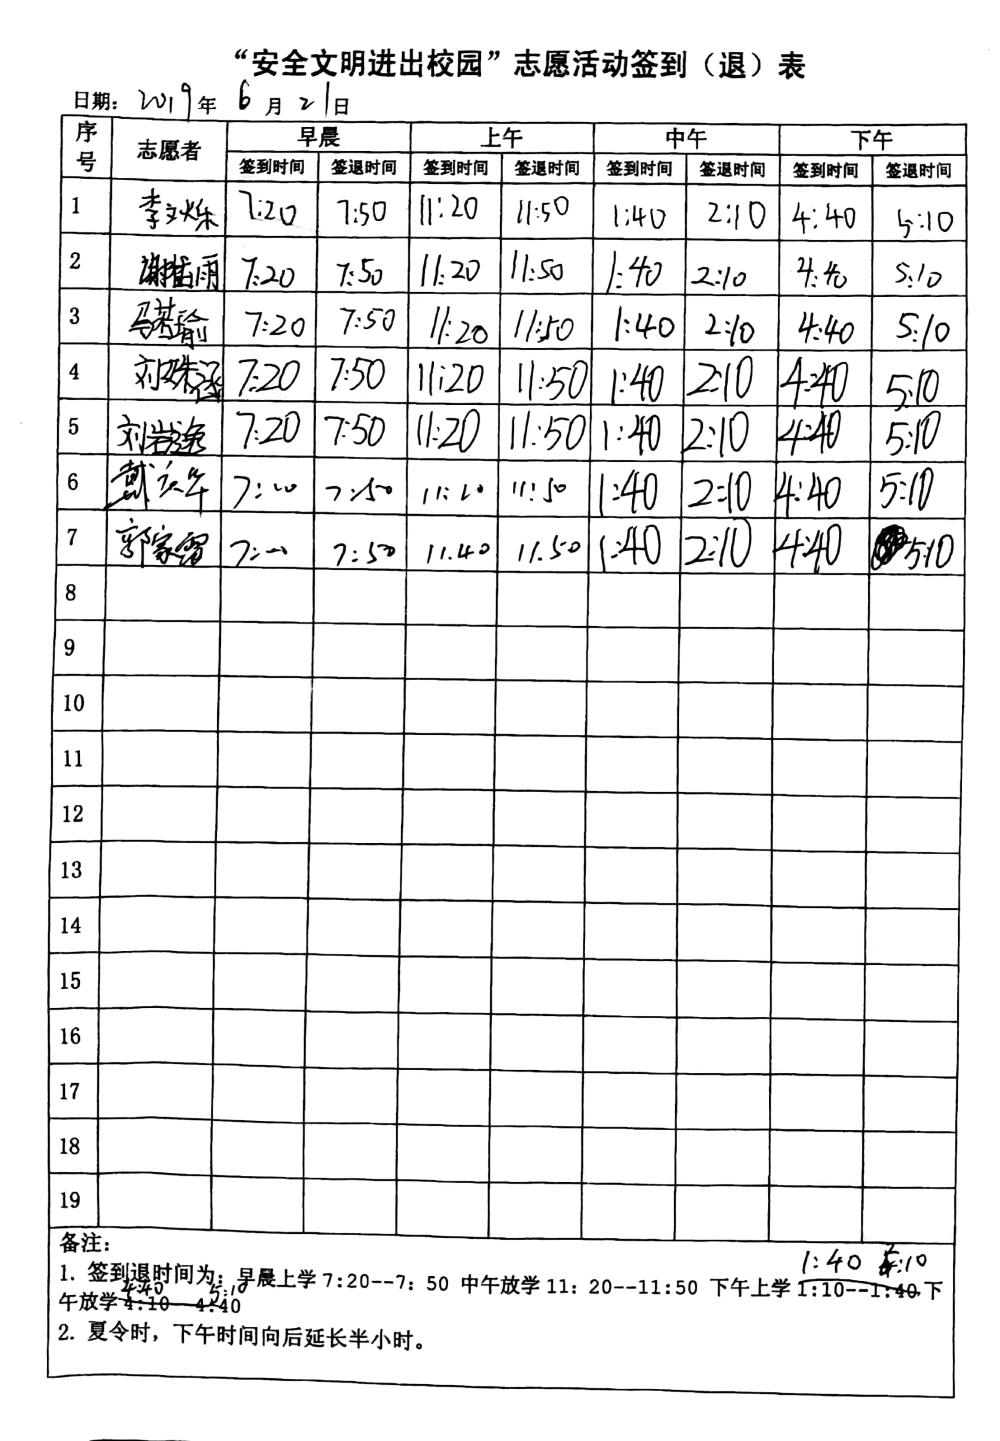 “安全文明进出校园”志愿活动签到（退）表
日期：2019年 6月 21日
序号 志愿者 早晨 上午 中午 下午
签到时间 签退时间 签到时间 签退时间 签到时间 签退时间 签到时间 签退时间
1 李文烁 7:20 7:50 11:20 11:50 1:40 2:10 4:40 5:10
2 雨 7:20 7:50 11:20 11:50 1:40 2:10 4:40 5:10
3 瑜 7:20 7:50 11:20 11:50 1:40 2:10 4:40 5:10
4 刘珠涵 7:20 7:50 11:20 11:50 1:40 2:10 4:40 5:10
5 刘岩 7:20 7:50 11:20 11:50 1:40 2:10 4:40 5:10
6 戴 7:50 11:20 11:50 1:40 2:10 4:40 5:10
7 郭家 7:50 11.40 11.50 1:40 2:10 4:40 5:10
8
9
10
11
12
13
14
15
16
17
18
19
备注：
1:40 5:10
1. 签到退时间为：早晨上学 7:20--7：50 中午放学 11：20--11:50 下午上学 1:10--1:40,下
4:40 5:10
午放学 4:10--4:40
2. 夏令时，下午时间向后延长半小时。